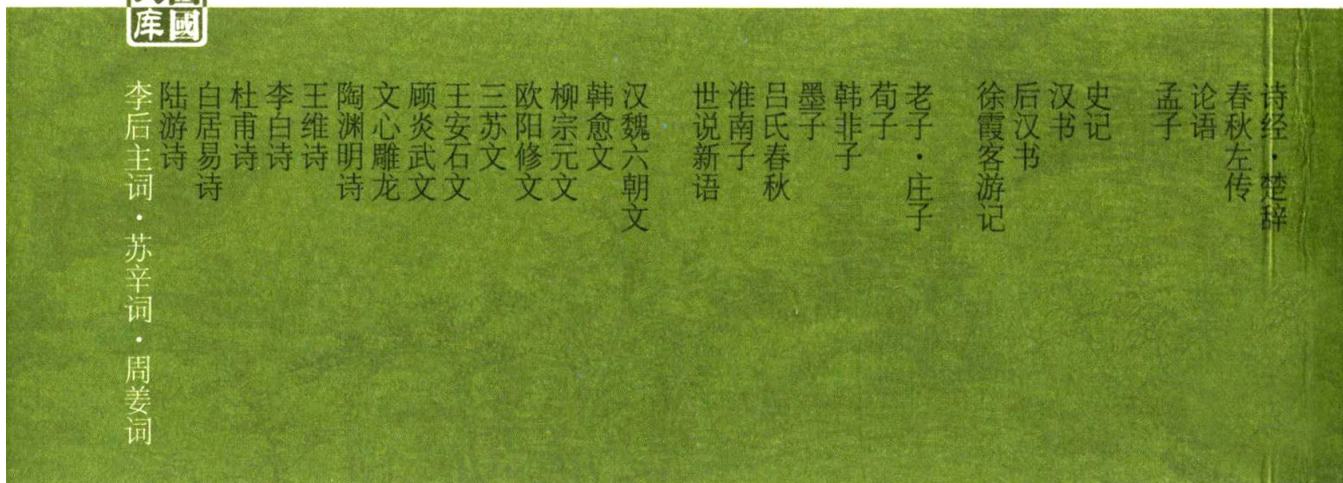 诗经·楚辞
春秋左传
论语
孟子
史记
汉书
后汉书
徐霞客游记
老子·庄子
荀子
韩非子
墨子
吕氏春秋
淮南子
世说新语
汉魏六朝文
韩愈文
柳宗元文
欧阳修文
三苏文
王安石文
顾炎武文
文心雕龙
陶渊明诗
王维诗
李白诗
杜甫诗
白居易诗
陆游诗
李后主词·苏辛词·周姜词
國
库